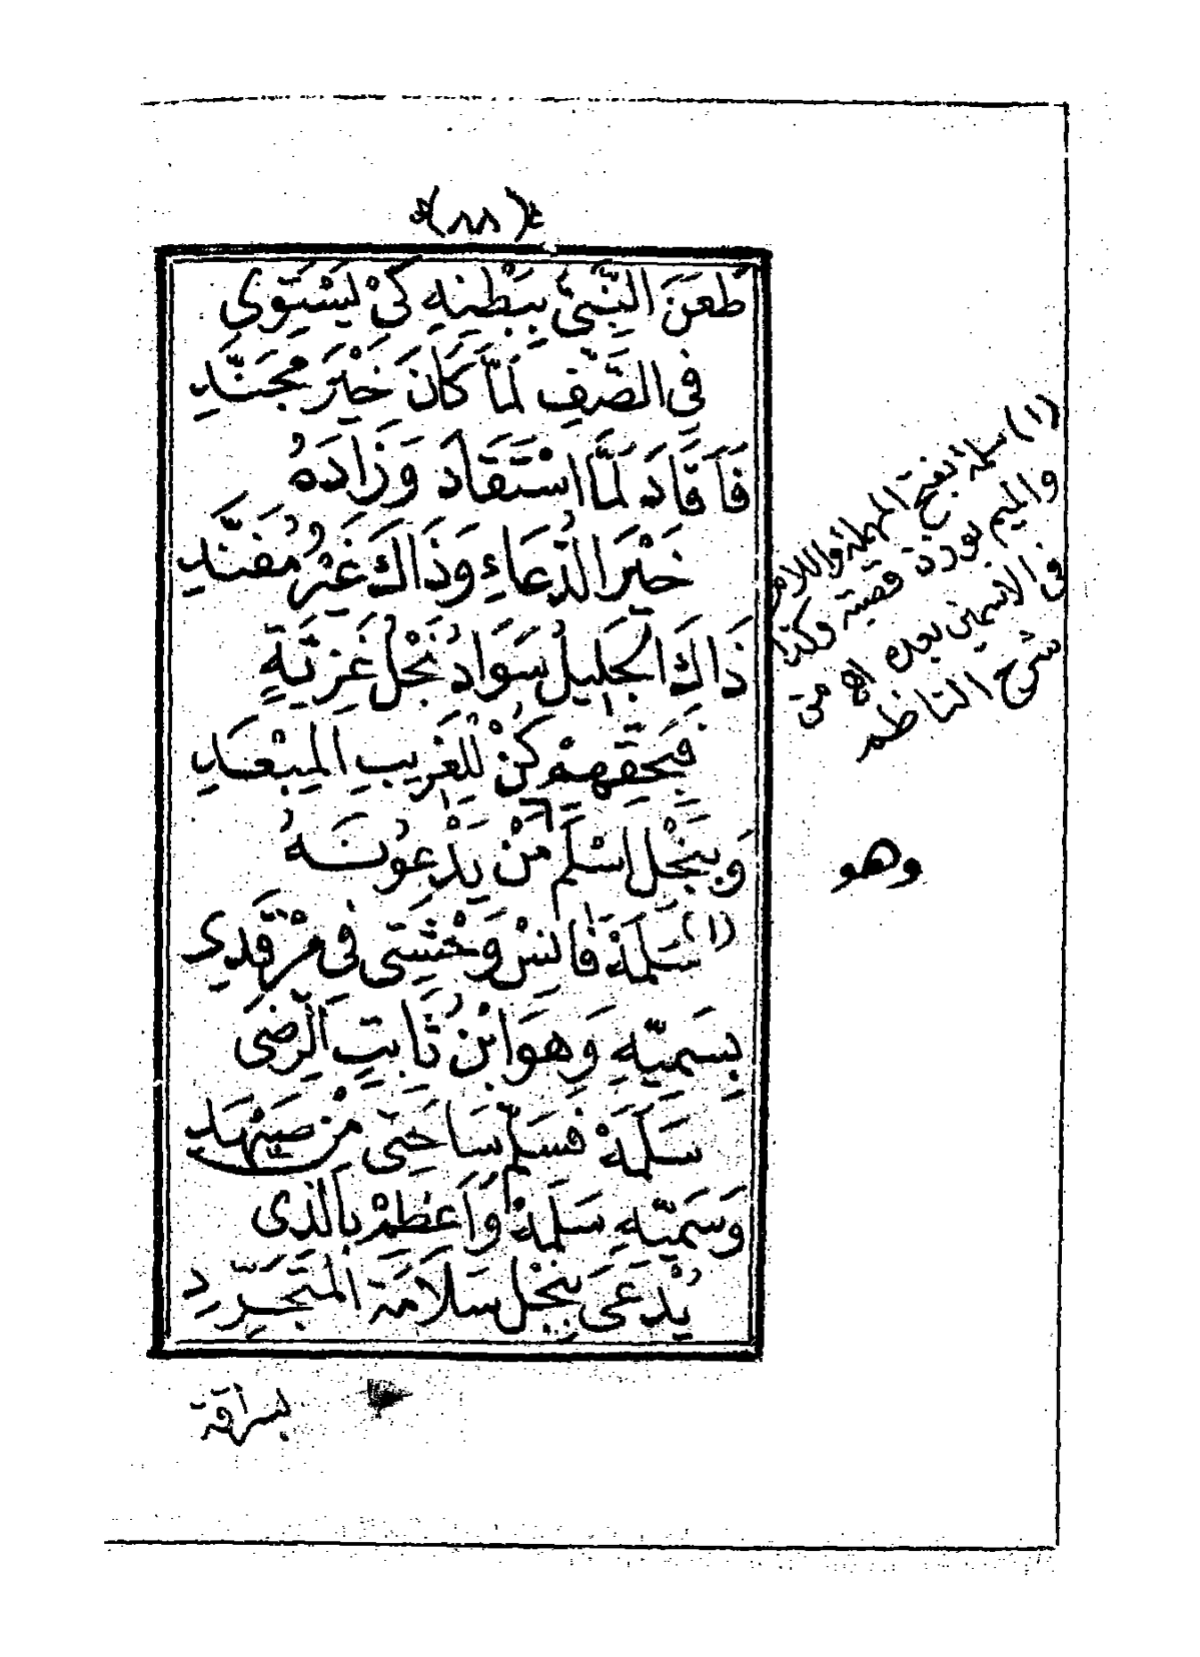 ﴿٨٨﴾
طَعَنَ النَّبِيُّ بِبَطْنِهِ كَيْ يَسْتَوِي
فِي الصَّفِّ لَمَّا كَانَ خَيْرَ مُجَنَّدِ
فَأَقَادَ لَمَّا اسْتَقَادَ وَزَادَهُ
خَيْرَ الدُّعَاءِ وَذَاكَ غَيْرُ مُفَنَّدِ
ذَاكَ الْجَلِيلُ سَوَادُ نَجْلُ غَزِيَّةٍ
فَبِحَقِّهِمْ كُنْ لِلْغَرِيبِ الْمُبْعَدِ
وَبِنَجْلِ اَسْلَمَ مَنْ يَدْعُونَهُ
(١) سَلَمَةْ فَاَنِسْ وَحْشَتِي فِي مَرْقَدِي
بِسَمِيِّهِ وَهُوَ ابْنُ ثَابِتٍ الرَّضِي
سَلَمَةْ فَسَلِّمْ سَاحَتِي مِنْ صَيْهَدِ
وَسَمِيِّهِ سَلَمَةْ وَاَعْظِمْ بِالَّذِي
يُدْعَى بِنَجْلِ سَلَامَةَ الْمُتَجَرِّدِ
(١) سلمة بفتح المهملة واللام
والميم بوزن قصبة وكذا
في الاسمين بعده اھ من
شرح الناظم
وهو
بسراقة